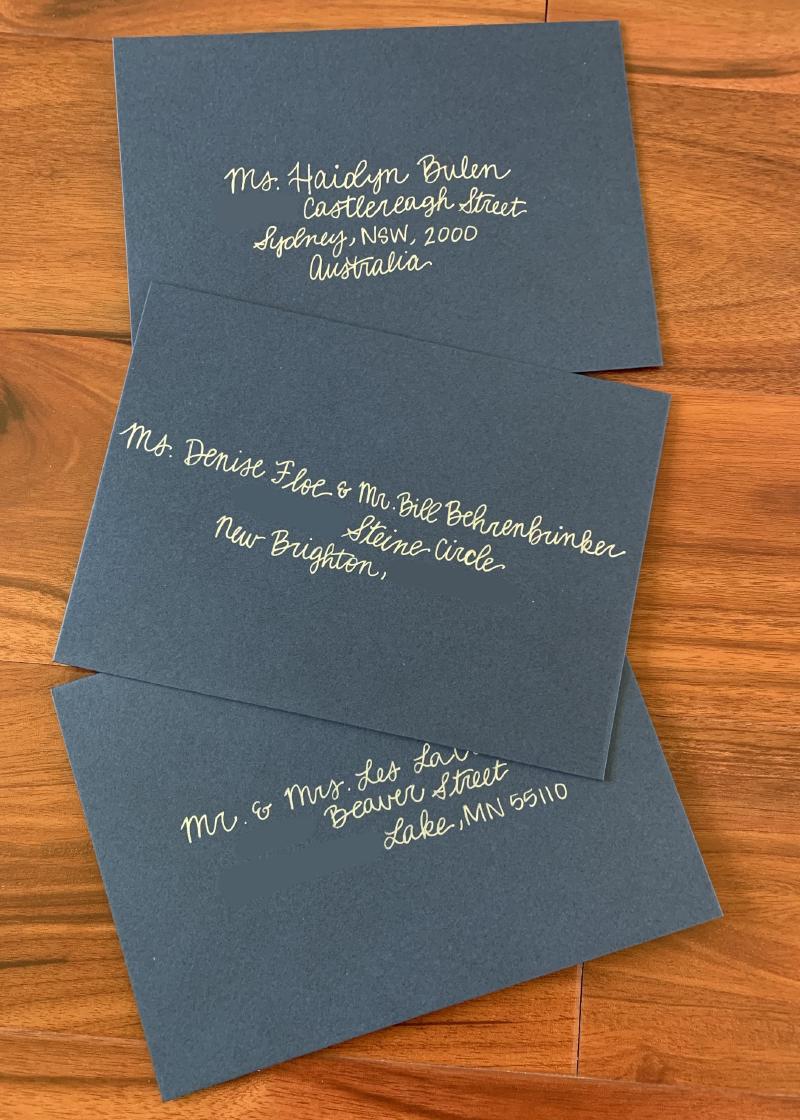 Ms. Haidyn Bulen
Castlereagh Street
Sydney, NSW, 2000
Australia
Ms. Denise Floe & Mr. Bill Behrenbrinker
Steine Circle
New Brighton,
Mr. & Mrs. Les
Beaver Street
Lake, MN 55110